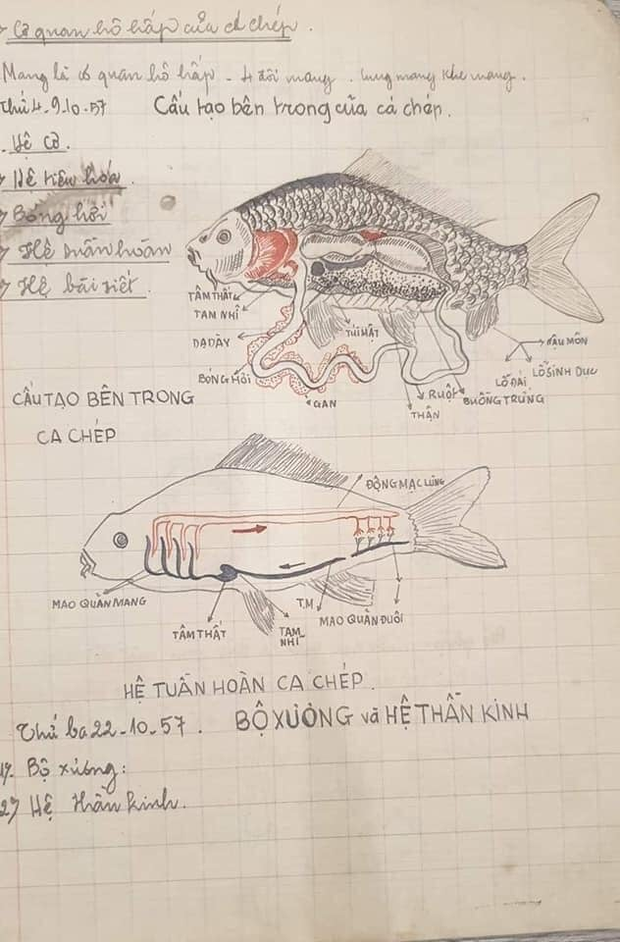 Cơ quan hô hấp của cá chép.
Mang là cơ quan hô hấp - 4 đôi mang. cung mang khe mang.
Thứ 4. 9.10.57 Cấu tạo bên trong của cá chép.
Hệ cơ.
Hệ tiêu hóa.
Bóng hơi
Hệ tuần hoàn
Hệ bài tiết.
TÂM THẤT
TAM NHĨ
DẠ DÀY
TÚI MẬT
BÓNG HƠI
GAN
RUỘT
BUỒNG TRỨNG
THẬN
HẬU MÔN
LỖ ĐÁI
LỖ SINH DỤC
CẤU TẠO BÊN TRONG
CA CHÉP
ĐỘNG MẠC LƯNG
MAO QUẢN MANG
TÂM THẤT
TAM NHĨ
T.M
MAO QUẢN ĐUÔI
HỆ TUẦN HOÀN CA CHÉP.
Thứ ba 22-10-57. BỘ XƯƠNG và HỆ THẦN KINH
Bộ xương:
27 Hệ thần kinh.